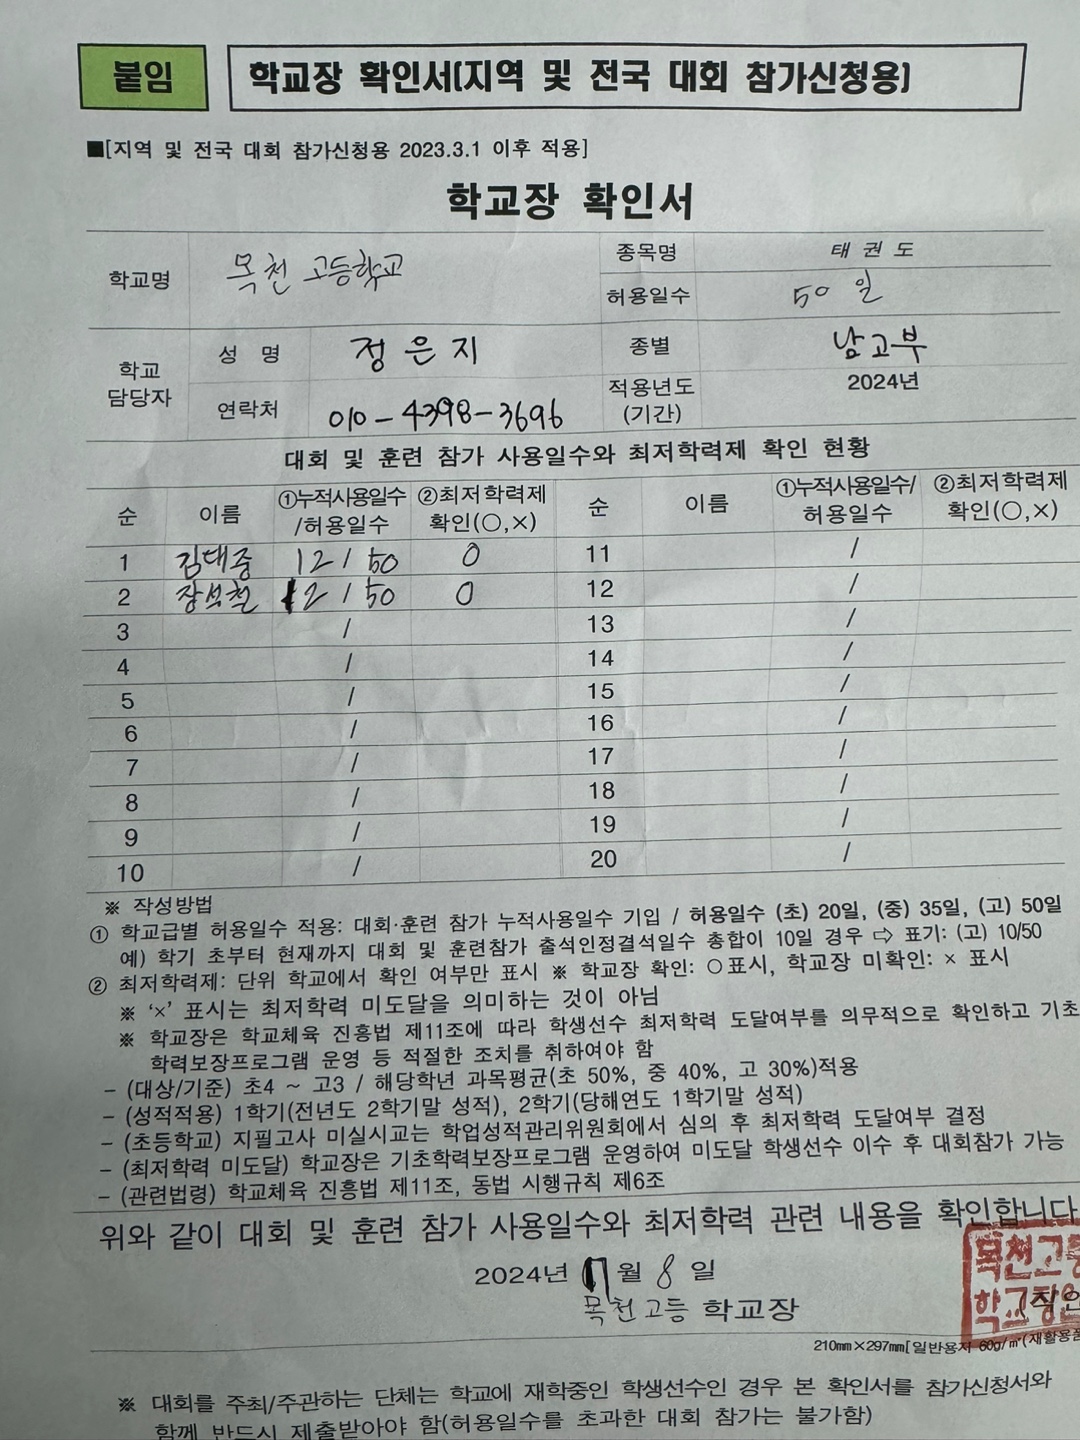 붙임
학교장 확인서(지역 및 전국 대회 참가신청용)
■[지역 및 전국 대회 참가신청용 2023.3.1 이후 적용]
학교장 확인서
학교명 목천고등학교 종목명 태권도
허용일수 50일
학교 담당자 성 명 정은지 종별 남고부
연락처 010-4398-3696 적용년도 (기간) 2024년
대회 및 훈련 참가 사용일수와 최저학력제 확인 현황
순 이름 ①누적사용일수 /허용일수 ②최저학력제 확인(○,×) 순 이름 ①누적사용일수/ 허용일수 ②최저학력제 확인(○,×)
1 김대중 12/50 0 11 /
2 장석철 12/50 0 12 /
3 / 13 /
4 / 14 /
5 / 15 /
6 / 16 /
7 / 17 /
8 / 18 /
9 / 19 /
10 / 20 /
※ 작성방법
① 학교급별 허용일수 적용: 대회·훈련 참가 누적사용일수 기입 / 허용일수 (초) 20일, (중) 35일, (고) 50일
예) 학기 초부터 현재까지 대회 및 훈련참가 출석인정결석일수 총합이 10일 경우 ⇨ 표기: (고) 10/50
② 최저학력제: 단위 학교에서 확인 여부만 표시 ※ 학교장 확인: ○표시, 학교장 미확인: × 표시
※ '×' 표시는 최저학력 미도달을 의미하는 것이 아님
※ 학교장은 학교체육 진흥법 제11조에 따라 학생선수 최저학력 도달여부를 의무적으로 확인하고 기초
학력보장프로그램 운영 등 적절한 조치를 취하여야 함
- (대상/기준) 초4 ~ 고3 / 해당학년 과목평균(초 50%, 중 40%, 고 30%)적용
- (성적적용) 1학기(전년도 2학기말 성적), 2학기(당해연도 1학기말 성적)
- (초등학교) 지필고사 미실시교는 학업성적관리위원회에서 심의 후 최저학력 도달여부 결정
- (최저학력 미도달) 학교장은 기초학력보장프로그램 운영하여 미도달 학생선수 이수 후 대회참가 가능
- (관련법령) 학교체육 진흥법 제11조, 동법 시행규칙 제6조
위와 같이 대회 및 훈련 참가 사용일수와 최저학력 관련 내용을 확인합니다
2024년 월 8일
목천고등 학교장 (직인
목천고등
학교장인
210mm×297mm[일반용지 60g/㎡(재활용품
※ 대회를 주최/주관하는 단체는 학교에 재학중인 학생선수인 경우 본 확인서를 참가신청서와
함께 반드시 제출받아야 함(허용일수를 초과한 대회 참가는 불가함)